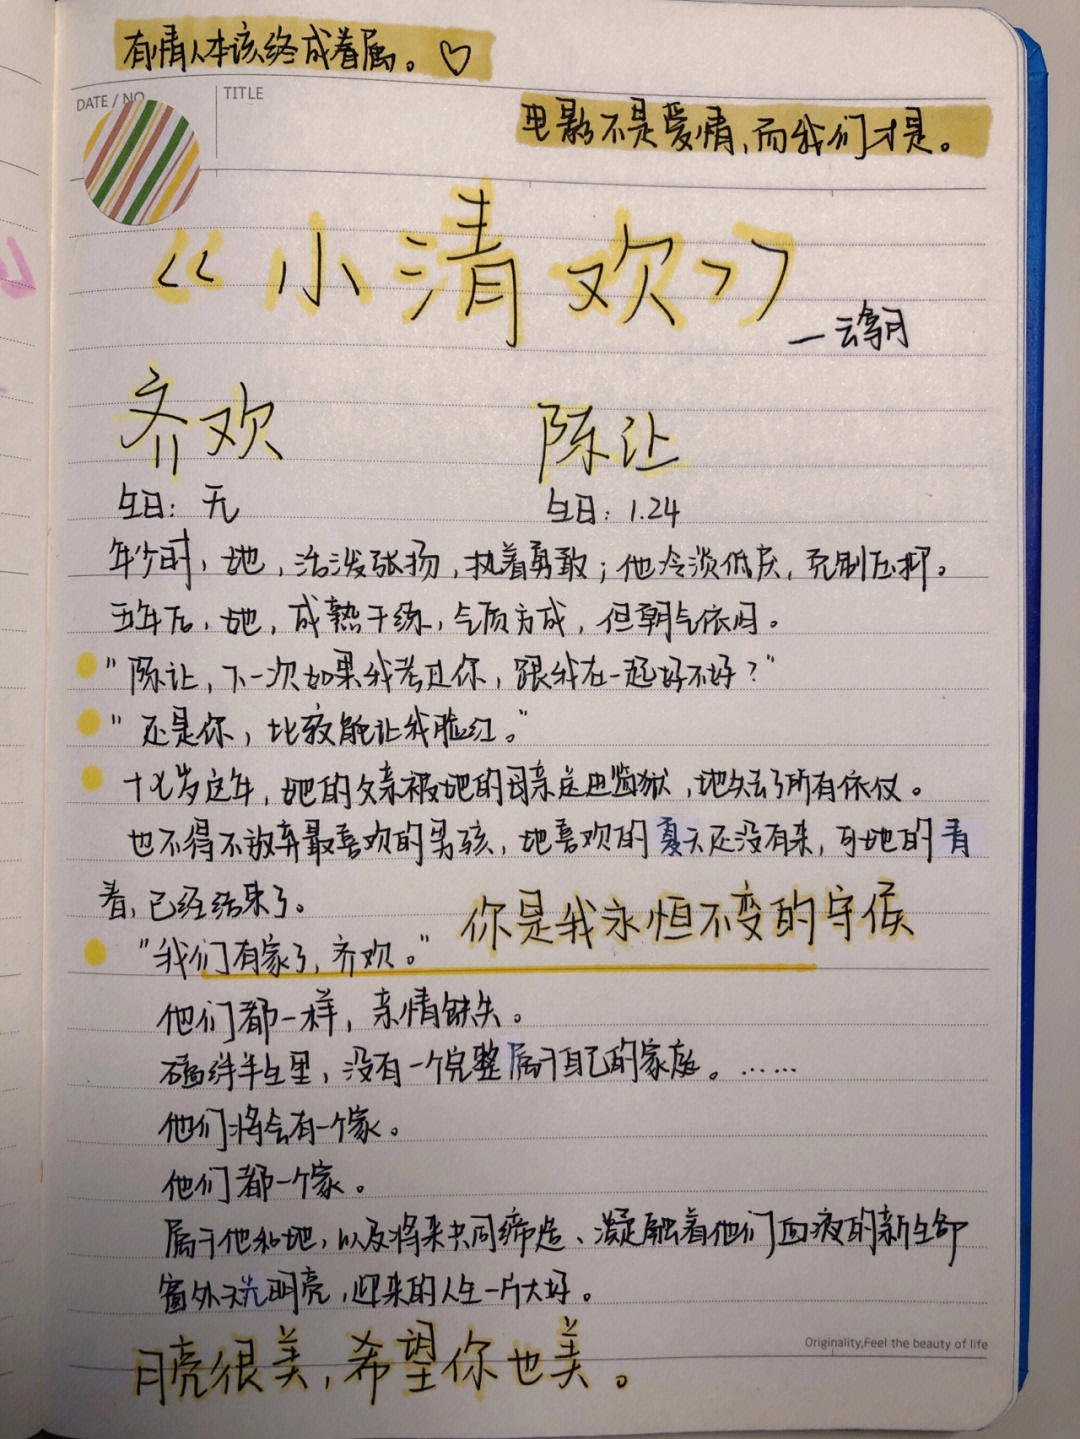 有情人本该终成眷属。♡
DATE / NO
TITLE
电影不是爱情,而我们才是。
《小清欢》
—云拿月
齐欢
陈让
生日:无
生日:1.24
年少时,她,活泼张扬,执着勇敢;他冷淡低戾,克制压抑。
五年后,她,成熟干练,气质方成,但朝气依旧。
"陈让,下一次如果我考过你,跟我在一起好不好?"
"还是你,比较能让我脸红。"
十七岁这年,她的父亲被她的母亲送进监狱,她失去了所有依仗。
也不得不放弃最喜欢的男孩,她喜欢的夏天还没有来,可她的青
春,已经结束了。
你是我永恒不变的守候
"我们有家了,齐欢。"
他们都一样,亲情缺失。
磕绊半生里,没有一个完整属于自己的家庭。……
他们将会有一个家。
他们都一个家。
属于他和她,以及将来共同缔造、凝融着他们血液的新生命
窗外天光明亮,迎来的人生一片大好。
Originality,Feel the beauty of life
月亮很美,希望你也美。